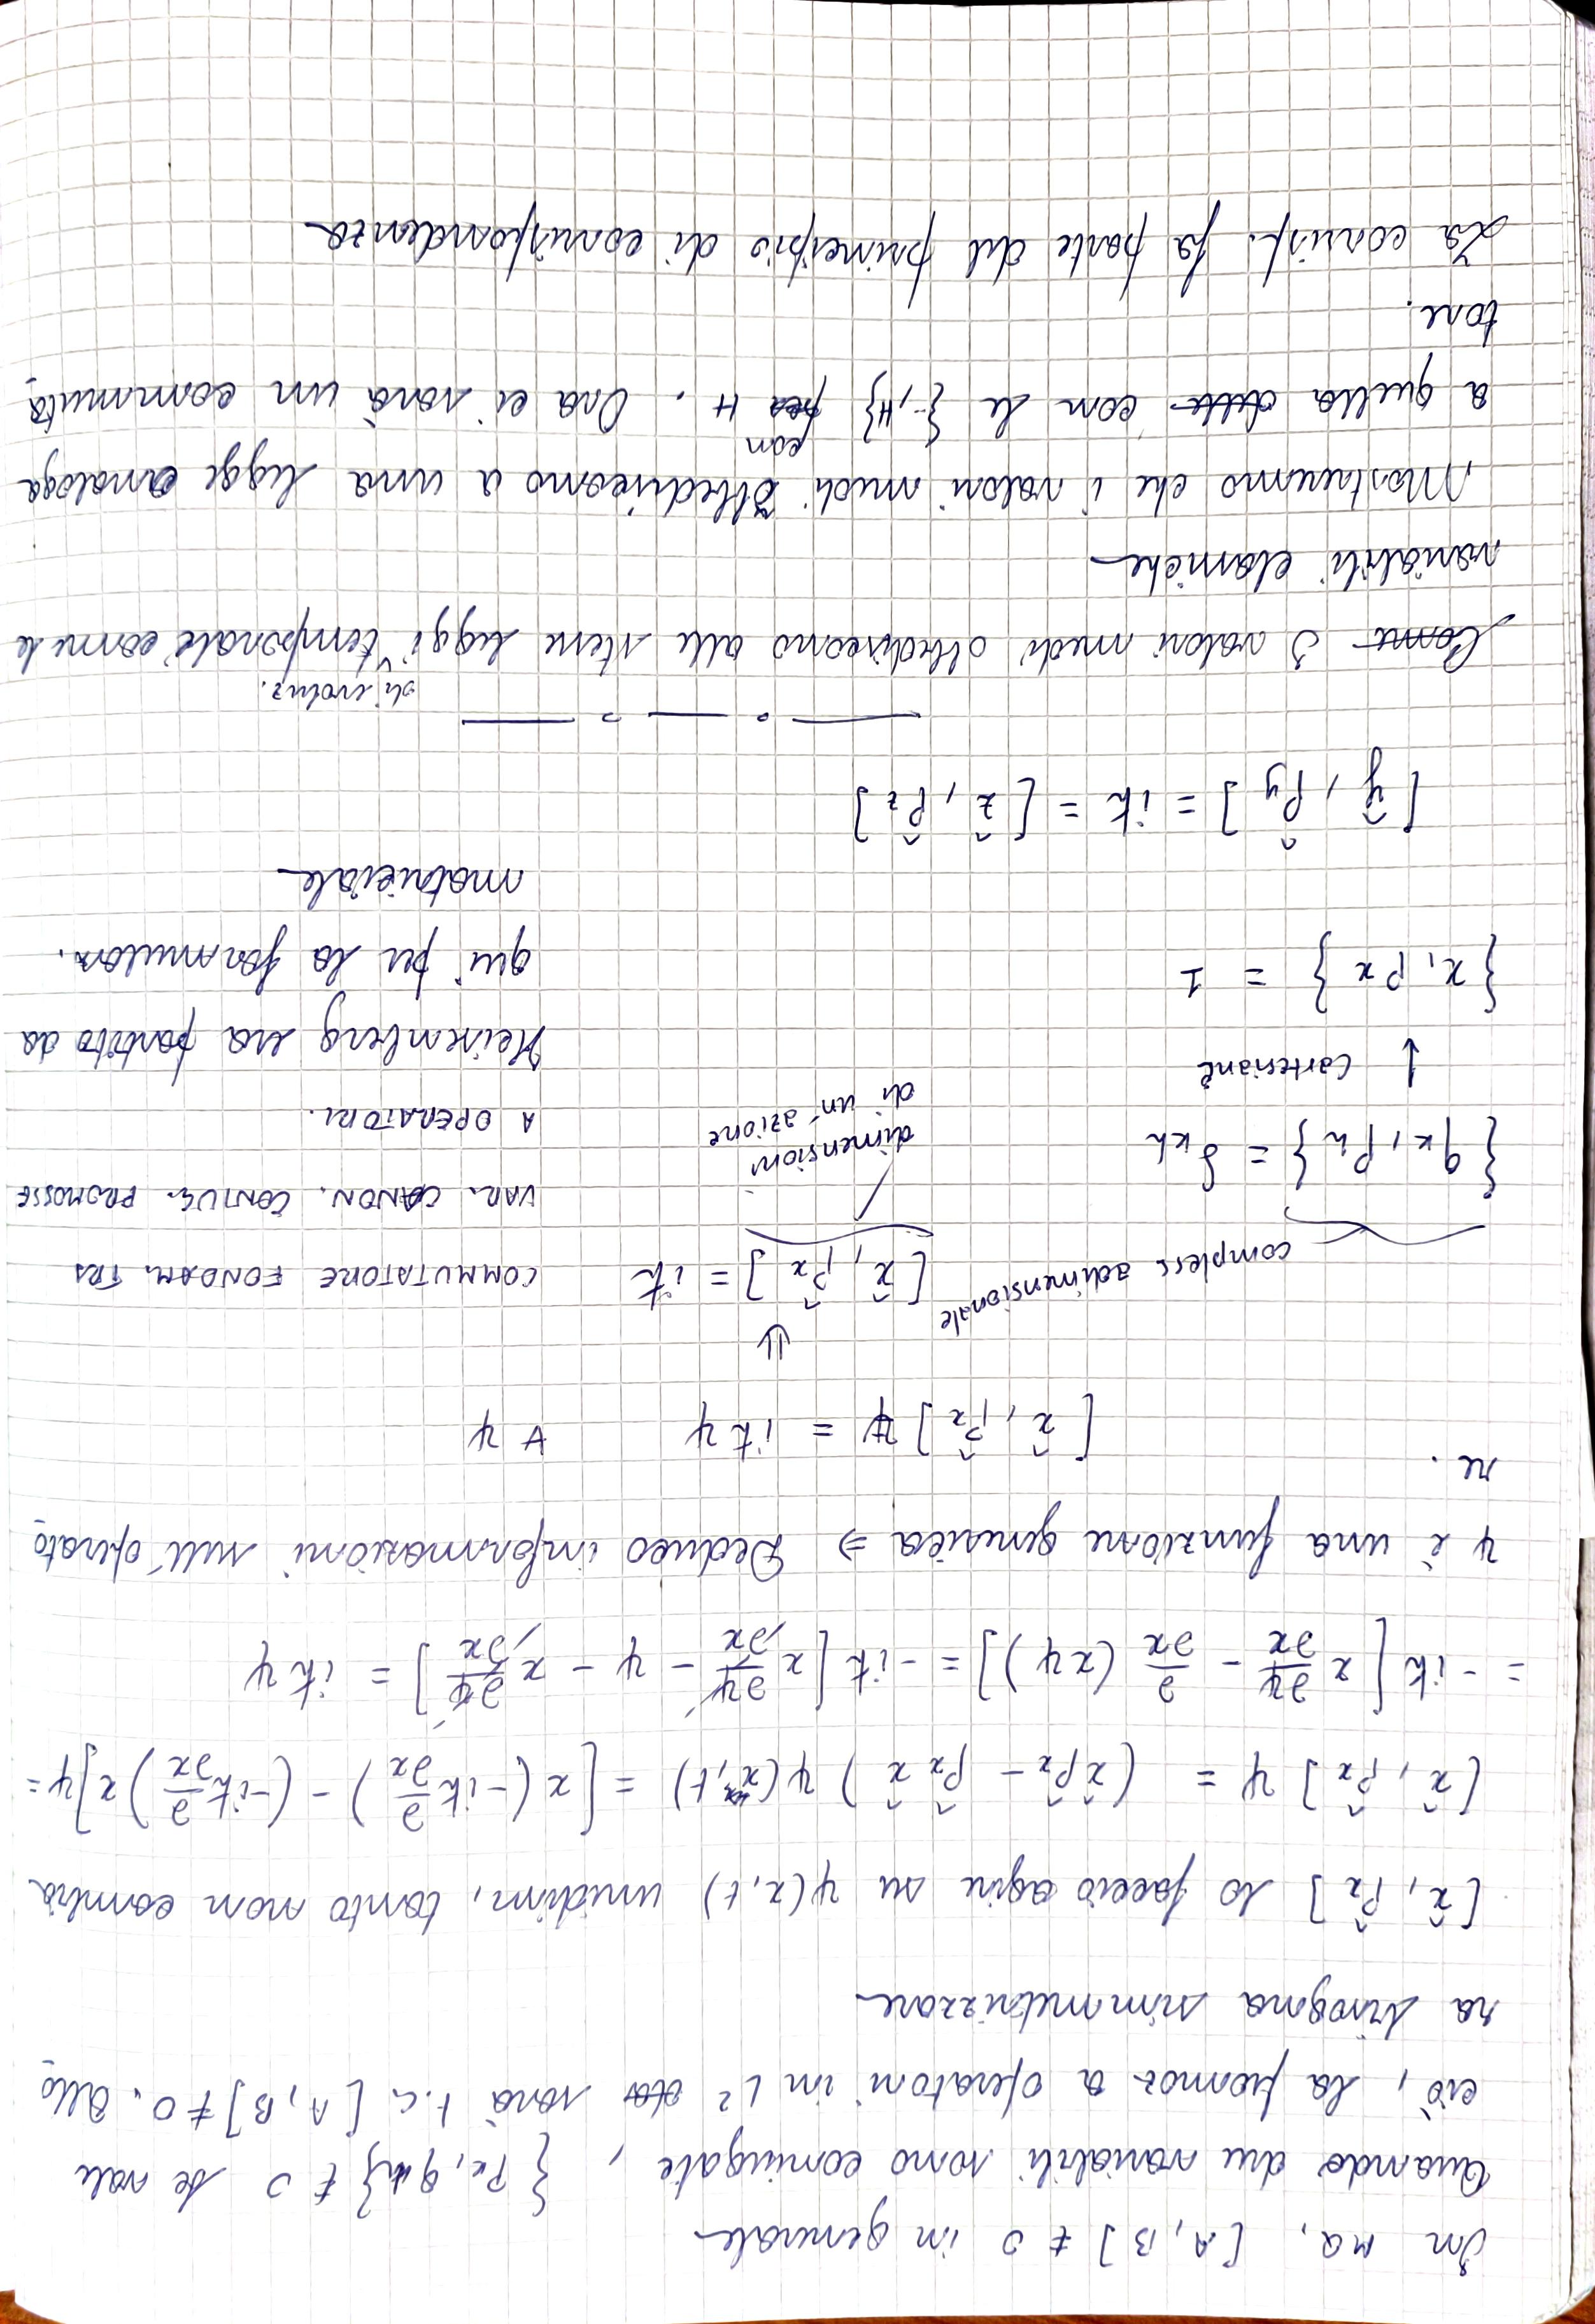 In MQ, [A, B] ≠ 0 in generale
Quando due variabili sono coniugate, {pₖ, qₕ} ≠ 0 se vale
ciò, la promoz a operatori in L² sarà t.c. [A, B] ≠ 0. Allo-
ra bisogna simmetrizzare
[x̂, p̂ₓ] lo faccio agire su ψ(x,t) unidim, tanto non cambia
[x̂, p̂ₓ] ψ = (x̂p̂ₓ - p̂ₓx̂) ψ(x,t) = [x(-iħ ∂/∂x) - (-iħ ∂/∂x)x]ψ =
= -iħ [x ∂ψ/∂x - ∂/∂x (xψ)] = -iħ [x ∂ψ/∂x - ψ - x ∂ψ/∂x] = iħψ
ψ è una funzione generica ⇒ Deduco informazioni sull'operato-
re.
[x̂, p̂ₓ]ψ = iħψ ∀ ψ
⇓
compless adimensionale
[x̂, p̂ₓ] = iħ
COMMUTATORE FONDAM. TRA
VAR. CANON. CONIUG. PROMOSSE
A OPERATORI.
{qₖ, pₕ} = δₖₕ
dimensioni
di un'azione
↓ Cartesiane
Heisenberg era partito da
qui per la formulaz.
matriciale
{x, pₓ} = 1
[ŷ, p̂y] = iħ = [ẑ, p̂z]
~~Come~~ I valori medi obbediscono alle stesse leggi di evoluz. temporale come le
variabili classiche
Mostreremo che i valori medi obbediscono a una legge analoga
a quella ~~delle~~ con le {··, H} ~~per~~ con H. Ora ci sarà un commuta-
tore.
La corrisp. fa parte del principio di corrispondenza